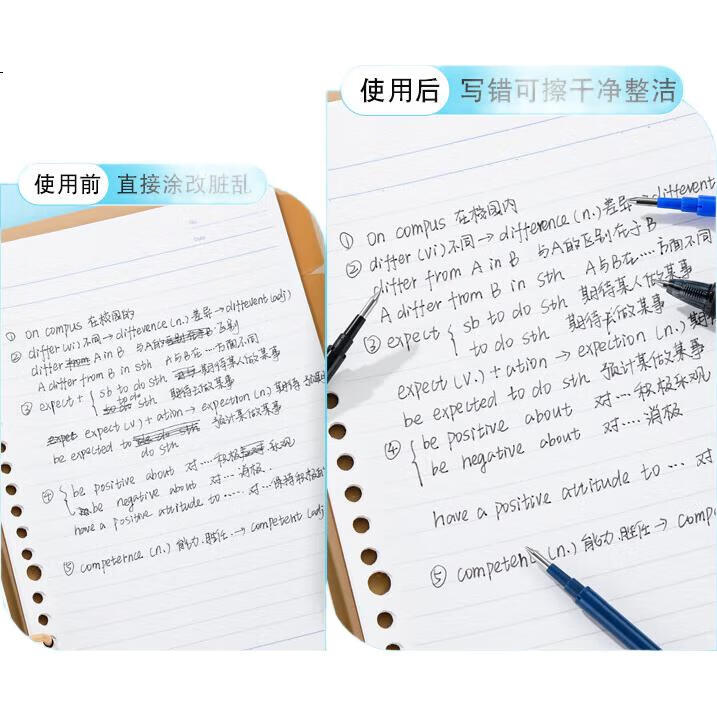 使用前 直接涂改脏乱
① on compus 在校园内
② differ (vi) 不同 → difference (n.) 差异 → different (adj)
differ from A in B 与A的区别在于B 区别
A differ from B in sth A与B在…方面不同
③ expect + { sb to do sth 期待某人做某事
to do sth 期待去做某事
expect expect (v.) + ation → expection (n.) 期待
be expected to do sth 预计某做某事
④ { be positive about 对…积极 乐观
be negative about 对…消极.
have a positive attitude to …… 对…保持积极
⑤ competernce (n.) 能力.胜任. → competent (adj
使用后 写错可擦干净整洁
① on compus 在校园内
② differ (vi) 不同 → difference (n.) 差异 → different
differ from A in B 与A的区别在于B
A differ from B in sth A与B在…方面不同
③ expect { sb to do sth 期待某人做某事
to do sth 期待去做某事
expect (v.) + ation → expection (n.) 期
be expected to do sth 预计某做某事
④ { be positive about 对…积极乐观
be negative about 对…消极
have a positive attitude to … 对
⑤ competent (n.) 能力.胜任 → comp